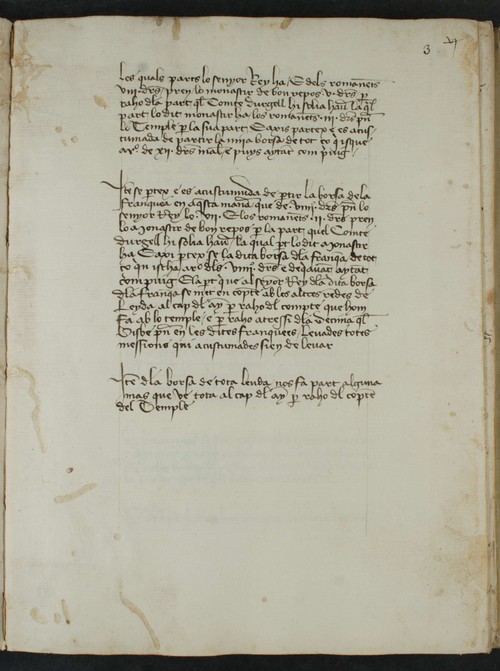 3 vj
les quals parts lo senyor Rey ha / E dels romanents
viii · drs / pren lo monastir de bon repos · v · drs p
raho dla part ql Comte durgell hi solia hauer la ql
part lo dit monastir ha los romanents · iii · drs pnen
lo Temple p la sua part E axi partex e es acus
tumada de partir la mija borsa de tot ço q isque
de xii drs mal e puys aytat com puig
Ite se ptex e es acustumada de ptir la borsa de la
franquea en aqsta mana que de viiii drs pn lo
senyor Rey los vii E los romanents · ii · drs pren
lo monastir de bon repos p la part quel Comte
durgell hi solia hauer la qual pt lo dit monastir
ha E axi ptex se la dita borsa dla franqa de tot
ço qn ischa dls viiii drs e deqauat aytat
com puig E la pt que al senyor Rey dla dita borsa
dla franqa se met en copte ab les altres redes de
Leyda al cap dl ay p raho dl compte que hom
fa ab lo temple e p raho atressi dla decima ql
Bisbe pn en les dites franquees Leuades totes
messions qui acustumades sien de leuar
Ite dla borsa de tota leuda nos fa part alguna
mas que ve tota al cap dl ay p raho dl copte
del Temple